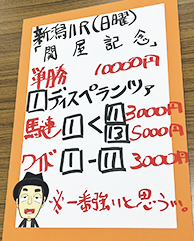 新潟11R(日曜)
「関屋記念」
単勝 10000円
1 ディスペランツァ
馬連 1 < 11 3000円
13 5000円
ワイド 1 - 11 3000円
※一番強いと思うっ。